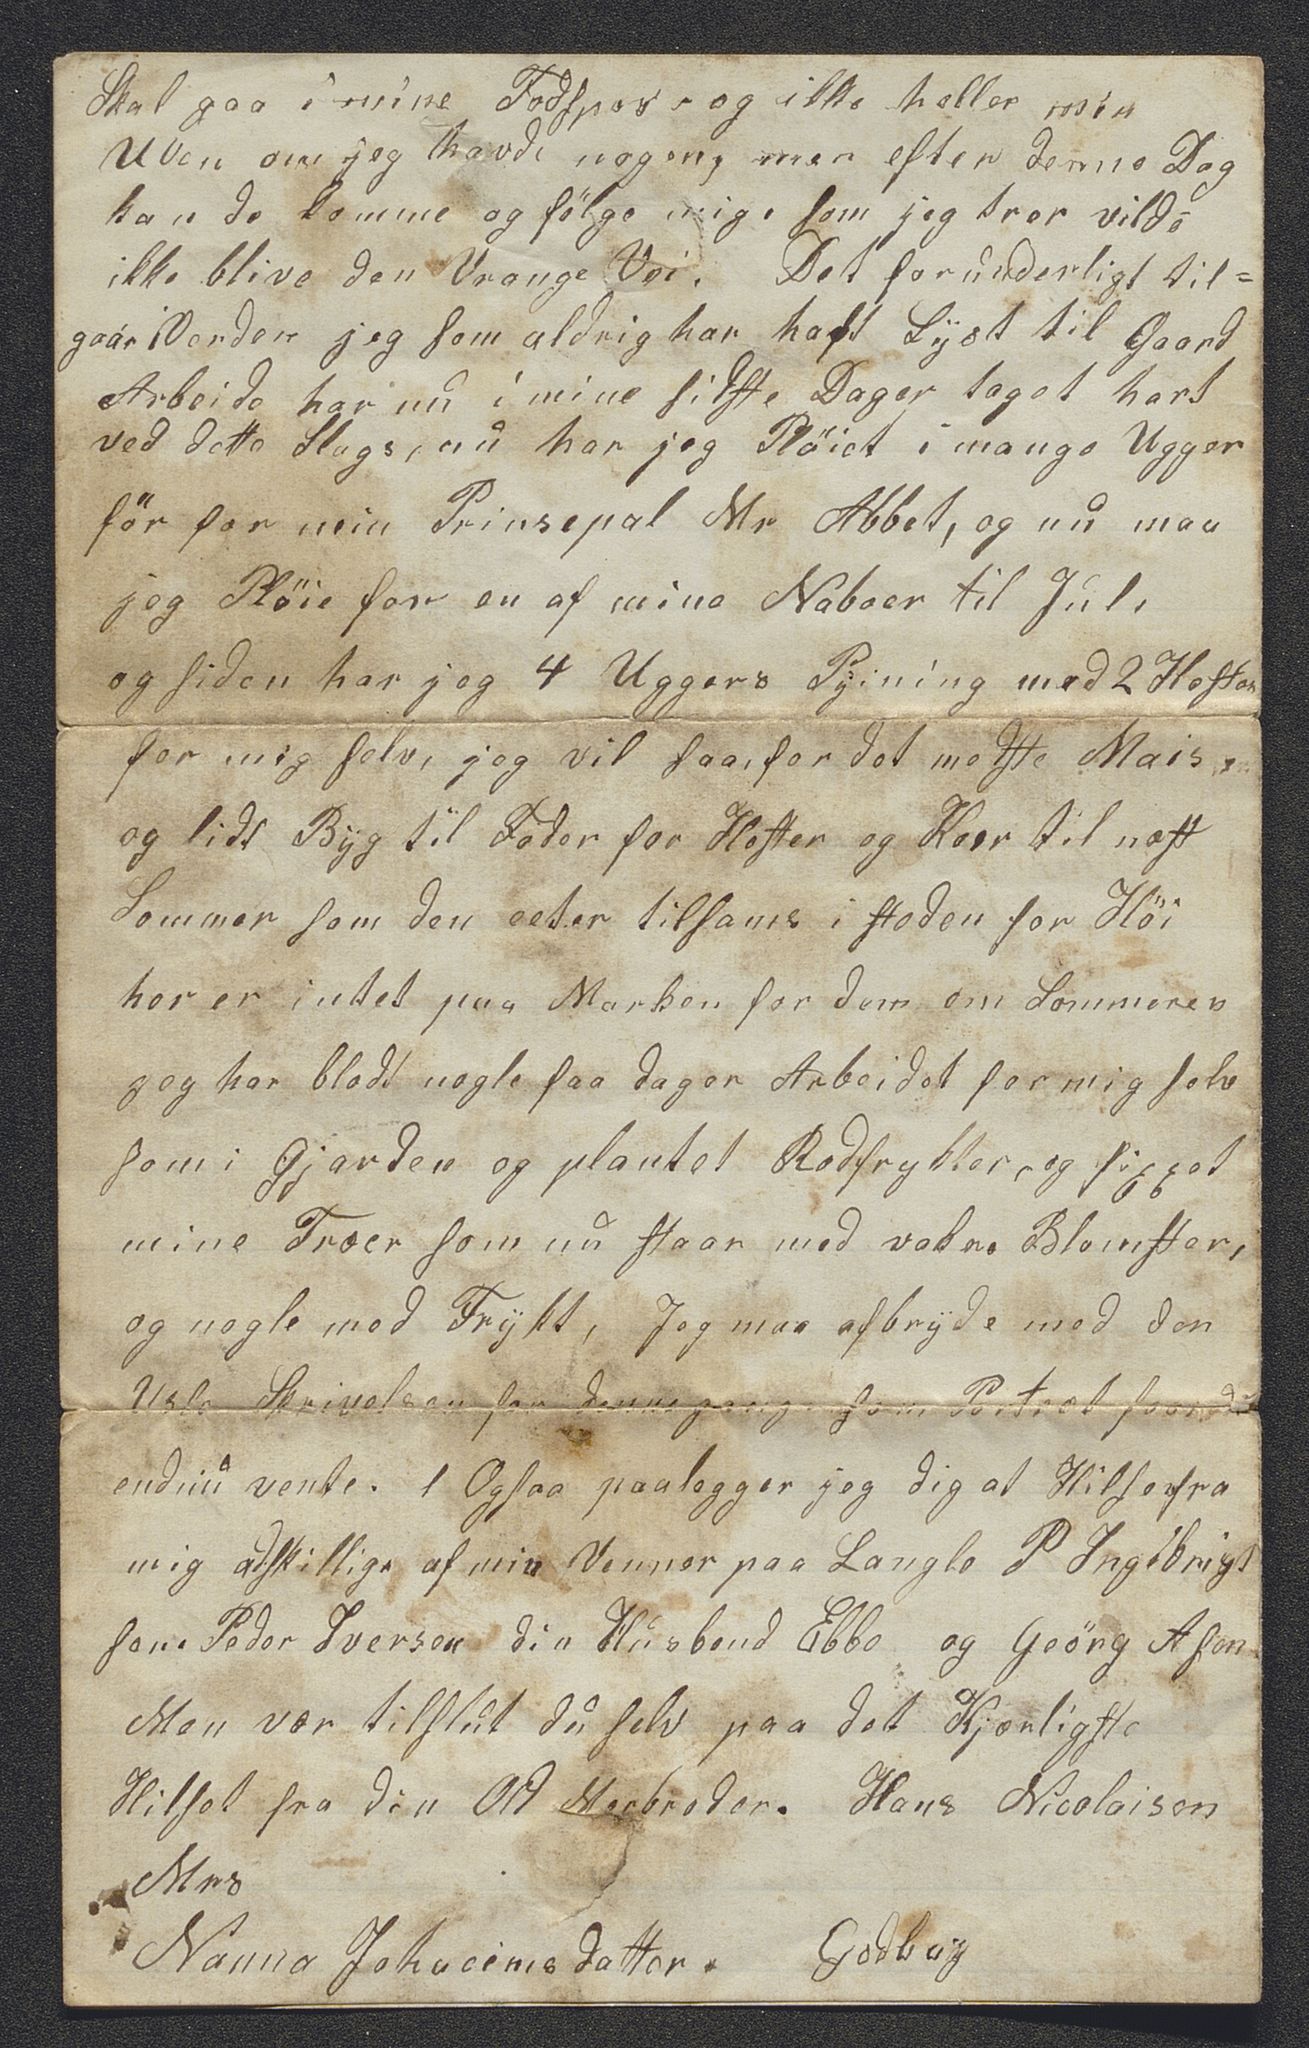 Skal gaa i mine Fodspor - og ikke heller min
Uven om jeg havde nogen, men efter denne Dag
kan de komme og fölge mig. som jeg tror vilde
ikke blive den Vrange Vei. Det forunderligt til=
gaar i Verden jeg som aldrig har haft Lyst til Gaard
Arbeide har nu i mine sidste Dager taget hart
ved dette Slags, nu har jeg Plöiet i mange Ugger
för for min Prinsepal Mr Abbet, og nu maa
jeg Plöie for en af mine Naboer til Jul,
og siden har jeg 4 Uggers Pyining med 2 Hester
for mig selv, jeg vil saa, for det meste Mais
og lidt Byg til Foder for Hester og Koer til næst
Sommer som den eeter tilsams i steden for Höi
her er intet paa Marken for dem om Sommeren
jeg har blodt nogle faa dager Arbeidet for mig selv
som i Gjarden og plantet Rodfrykter, og
mine Træer som nu staar med vakre Blomster,
og nogle med Frykt, Jeg maa afbryde med den
Usle Skrivelsen for dennegang. som Portræt faar du
endnu vente. Ogsaa paalegger jeg dig at Hilse fra
mig adskillige af min Venner paa Langlo P Ingebrigt
sen. Peder Iversen din Husbond Ebbe og Geörg Asen
Men vær tilslut du selv paa det Kjærligste
Hilset fra din Old Morbroder. Hans Nicolaisen
Mrs
Nanna Johacimsdatter. Godbuy